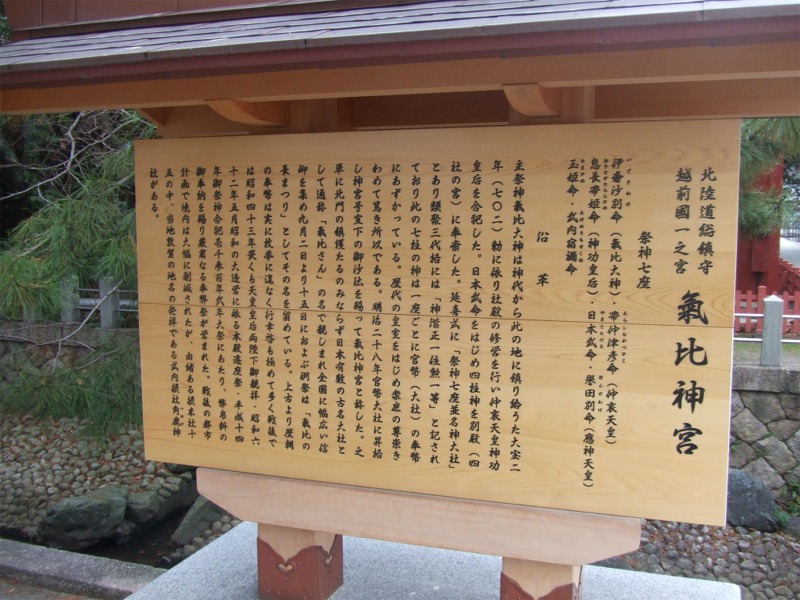 北陸道総鎮守
越前國一之宮
氣比神宮
祭神七座
伊奢沙別命（氣比大神）・帯仲津彦命（仲哀天皇）
息長帯姫命（神功皇后）・日本武命・誉田別命（應神天皇）
玉姫命・武内宿禰命
沿革
主祭神氣比大神は神代から此の地に鎮り給うた大宝二
年（七〇二）勅に依り社殿の修営を行い仲哀天皇神功
皇后を合祀した。日本武命をはじめ四柱神を別殿（四
社の宮）に奉斎した。延喜式に「祭神七座並名神大社」
とあり類聚三代格には「神階正一位勲一等」と記され
ており此の七柱の神は一座ごとに官幣（大社）の奉幣
にあずかっている。歴代の皇室をはじめ衆庶の尊崇き
わめて篤き所以である。明治二十八年官幣大社に昇格
し神宮号宣下の御沙汰を賜って氣比神宮と称した。之
単に北門の鎮護たるのみならず日本有数の古名大社と
して通称「氣比さん」の名で親しまれ全国に幅広い信
仰を集め九月二日より十五日におよぶ例祭は「氣比の
長まつり」としてその名を留めている。上古より歴朝
の奉幣は実に枚挙に遑なく行幸啓も極めて多く戦後で
は昭和四十三年畏くも天皇皇后両陛下御親拝・昭和六
十二年五月昭和の大造営に依る本殿遷座祭・平成十四
年御祭神合祀壱千参百年式年大祭にあたり、幣帛料の
御奉納を賜り厳粛なる奉幣祭が営まれた。戦後の都市
計画で境内は大幅に削減されたが、由緒ある摂末社十
五の中、当地敦賀の地名の発祥である式内摂社角鹿神
社がある。